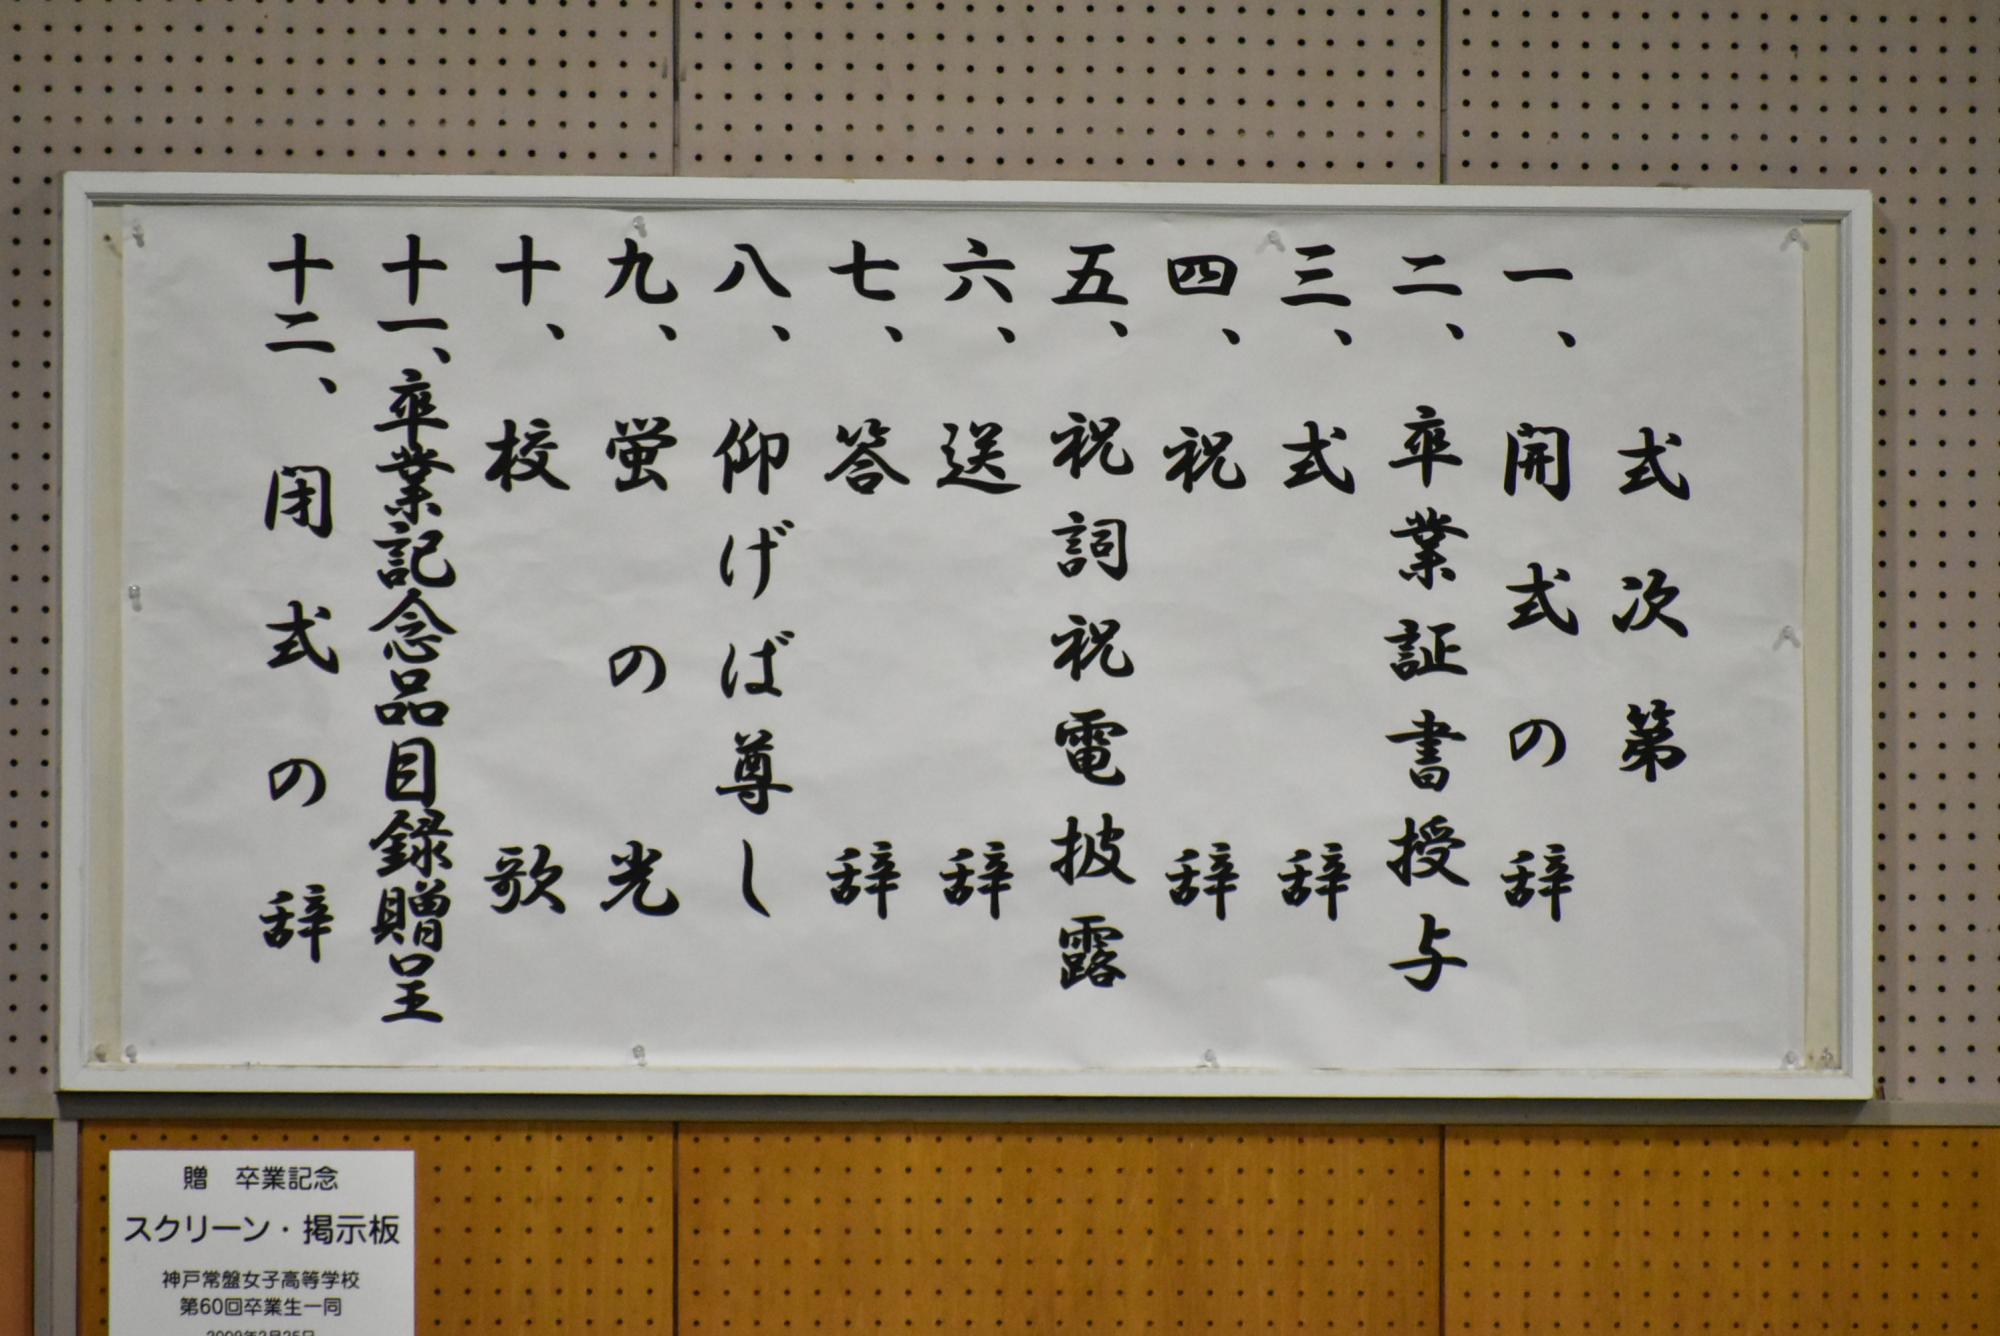 式次第
一、開式の辞
二、卒業証書授与
三、式辞
四、祝辞
五、祝詞祝電披露
六、送辞
七、答辞
八、仰げば尊し
九、蛍の光
十、校歌
十一、卒業記念品目録贈呈
十二、閉式の辞
贈　卒業記念
スクリーン・掲示板
神戸常盤女子高等学校
第60回卒業生一同